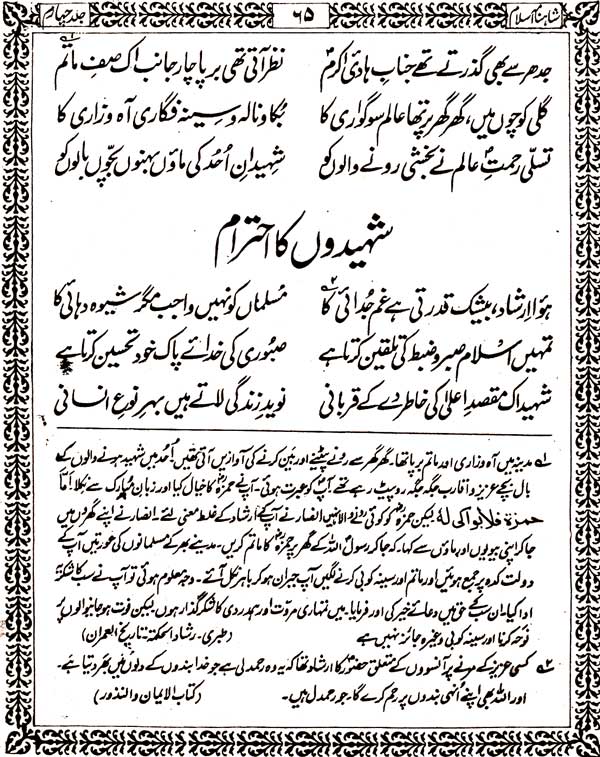 شاہنامۂ اسلام ۶۵ جلد چہارم
جدھر سے بھی گذرتے تھے جناب ہادیٔ اکرمؐ نظر آتی تھی برپا چار جانب اک صفِ ماتم ۱؎
گلی کوچوں میں، گھر گھر پر تھا عالم سوگواری کا بُکا و نالہ و سینہ فگاری آہ و زاری کا
تسلّی رحمتِ عالمؐ نے بخشی رونے والوں کو شہیدانِ اُحُد کی ماؤں بہنوں بچّوں بالوں کو
شہیدوں کا احترام
ہؤا ارشاد، بیشک قدرتی ہے غم جُدائی کا ۲؎ مسلماں کو نہیں واجب مگر شیوہ دہائی کا
تمہیں اسلام صبر و ضبط کی تلقین کرتا ہے صبوری کی خدائے پاک خود تحسین کرتا ہے
شہید اک مقصدِ اعلیٰ کی خاطر دے کے قربانی نویدِ زندگی لاتے ہیں بہرِ نوعِ انسانی
۱؎ مدینہ میں آہ و زاری اور ماتم برپا تھا۔ گھر گھر سے رونے پیٹنے اور بَین کرنے کی آوازیں آتی تھیں۔ اُحد میں شہید ہونے والوں کے
بال بچے عزیز و اقارب جگہ جگہ رو پیٹ رہے تھے آپؐ کو عبرت ہوئی۔ آپؐ نے حمزہؓ کا خیال کیا اور زبان مُبارک سے نِکلا! اَمَّا
حمزۃ فلا بواکی لہٗ لیکن حمزہؓ کو کوئی رونے والا نہیں انصار نے آپؐ کے ارشاد کے غلط معنی لئے! انصار نے اپنے گھروں میں
جا کر اپنی بیویوں اور ماؤں سے کہا کہ جا کر رسولؐ اللہ کے گھر پر حمزہؓ کا ماتم کریں۔ مدینے بھر کے مسلمانوں کی عورتیں آپؐ کے
دولت کدہ پر جمع ہوئیں اور ماتم اور سینہ کوبی کرنے لگیں آپؐ حیران ہو کر باہر نکل آئے۔ وجہ معلوم ہوئی تو آپؐ نے سب کا شکریہ
ادا کیا۔ ان سب کے حق میں دعائے خیر کی اور فرمایا۔ میں تمہاری مروّت اور ہمدردی کا شکر گذار ہوں۔ لیکن فوت ہو جانیوالوں پر
نوحہ کرنا اور سینہ کوبی وغیرہ جائز نہیں ہے (طبری۔ رشاد الحکمۃ: تاریخ العمران)
۲؎ کسی عزیز کے مرنے پر آنسوؤں کے متعلق حضورؐ کا ارشاد تھا کہ یہ وہ رحمدلی ہے جو خدا بندوں کے دلوں میں بھر دیتا ہے۔
اور اللہ بھی اپنے اُنہی بندوں پر رحم کرے گا۔ جو رحمدل ہیں۔ (کتاب الایمان والنذور)